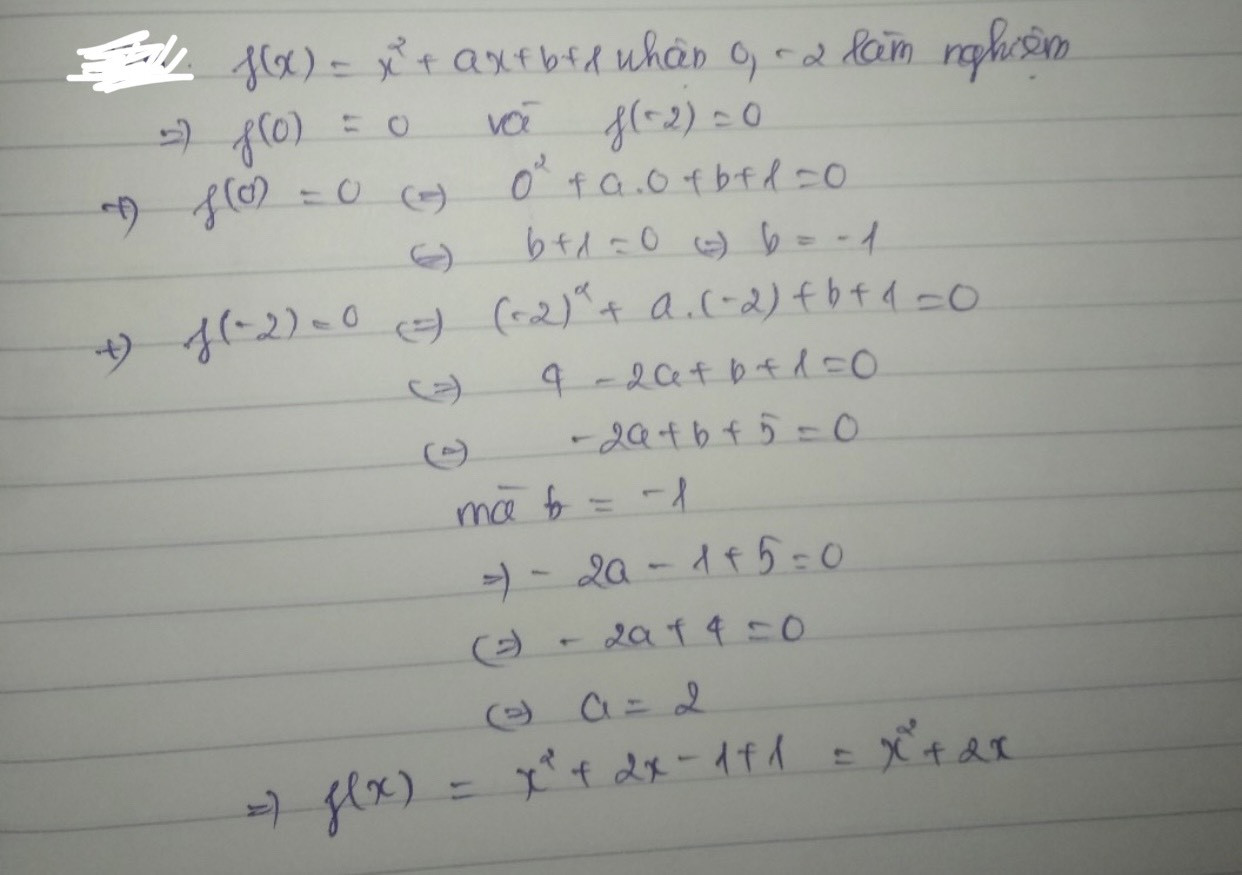 f(x) = x² + ax + b + 1 nhận 0, -2 làm nghiệm
=> f(0) = 0 và f(-2) = 0
+) f(0) = 0 <=> 0² + a.0 + b + 1 = 0
<=> b + 1 = 0 <=> b = -1
+) f(-2) = 0 <=> (-2)² + a.(-2) + b + 1 = 0
<=> 4 - 2a + b + 1 = 0
<=> - 2a + b + 5 = 0
mà b = -1
=> - 2a - 1 + 5 = 0
<=> - 2a + 4 = 0
<=> a = 2
=> f(x) = x² + 2x - 1 + 1 = x² + 2x